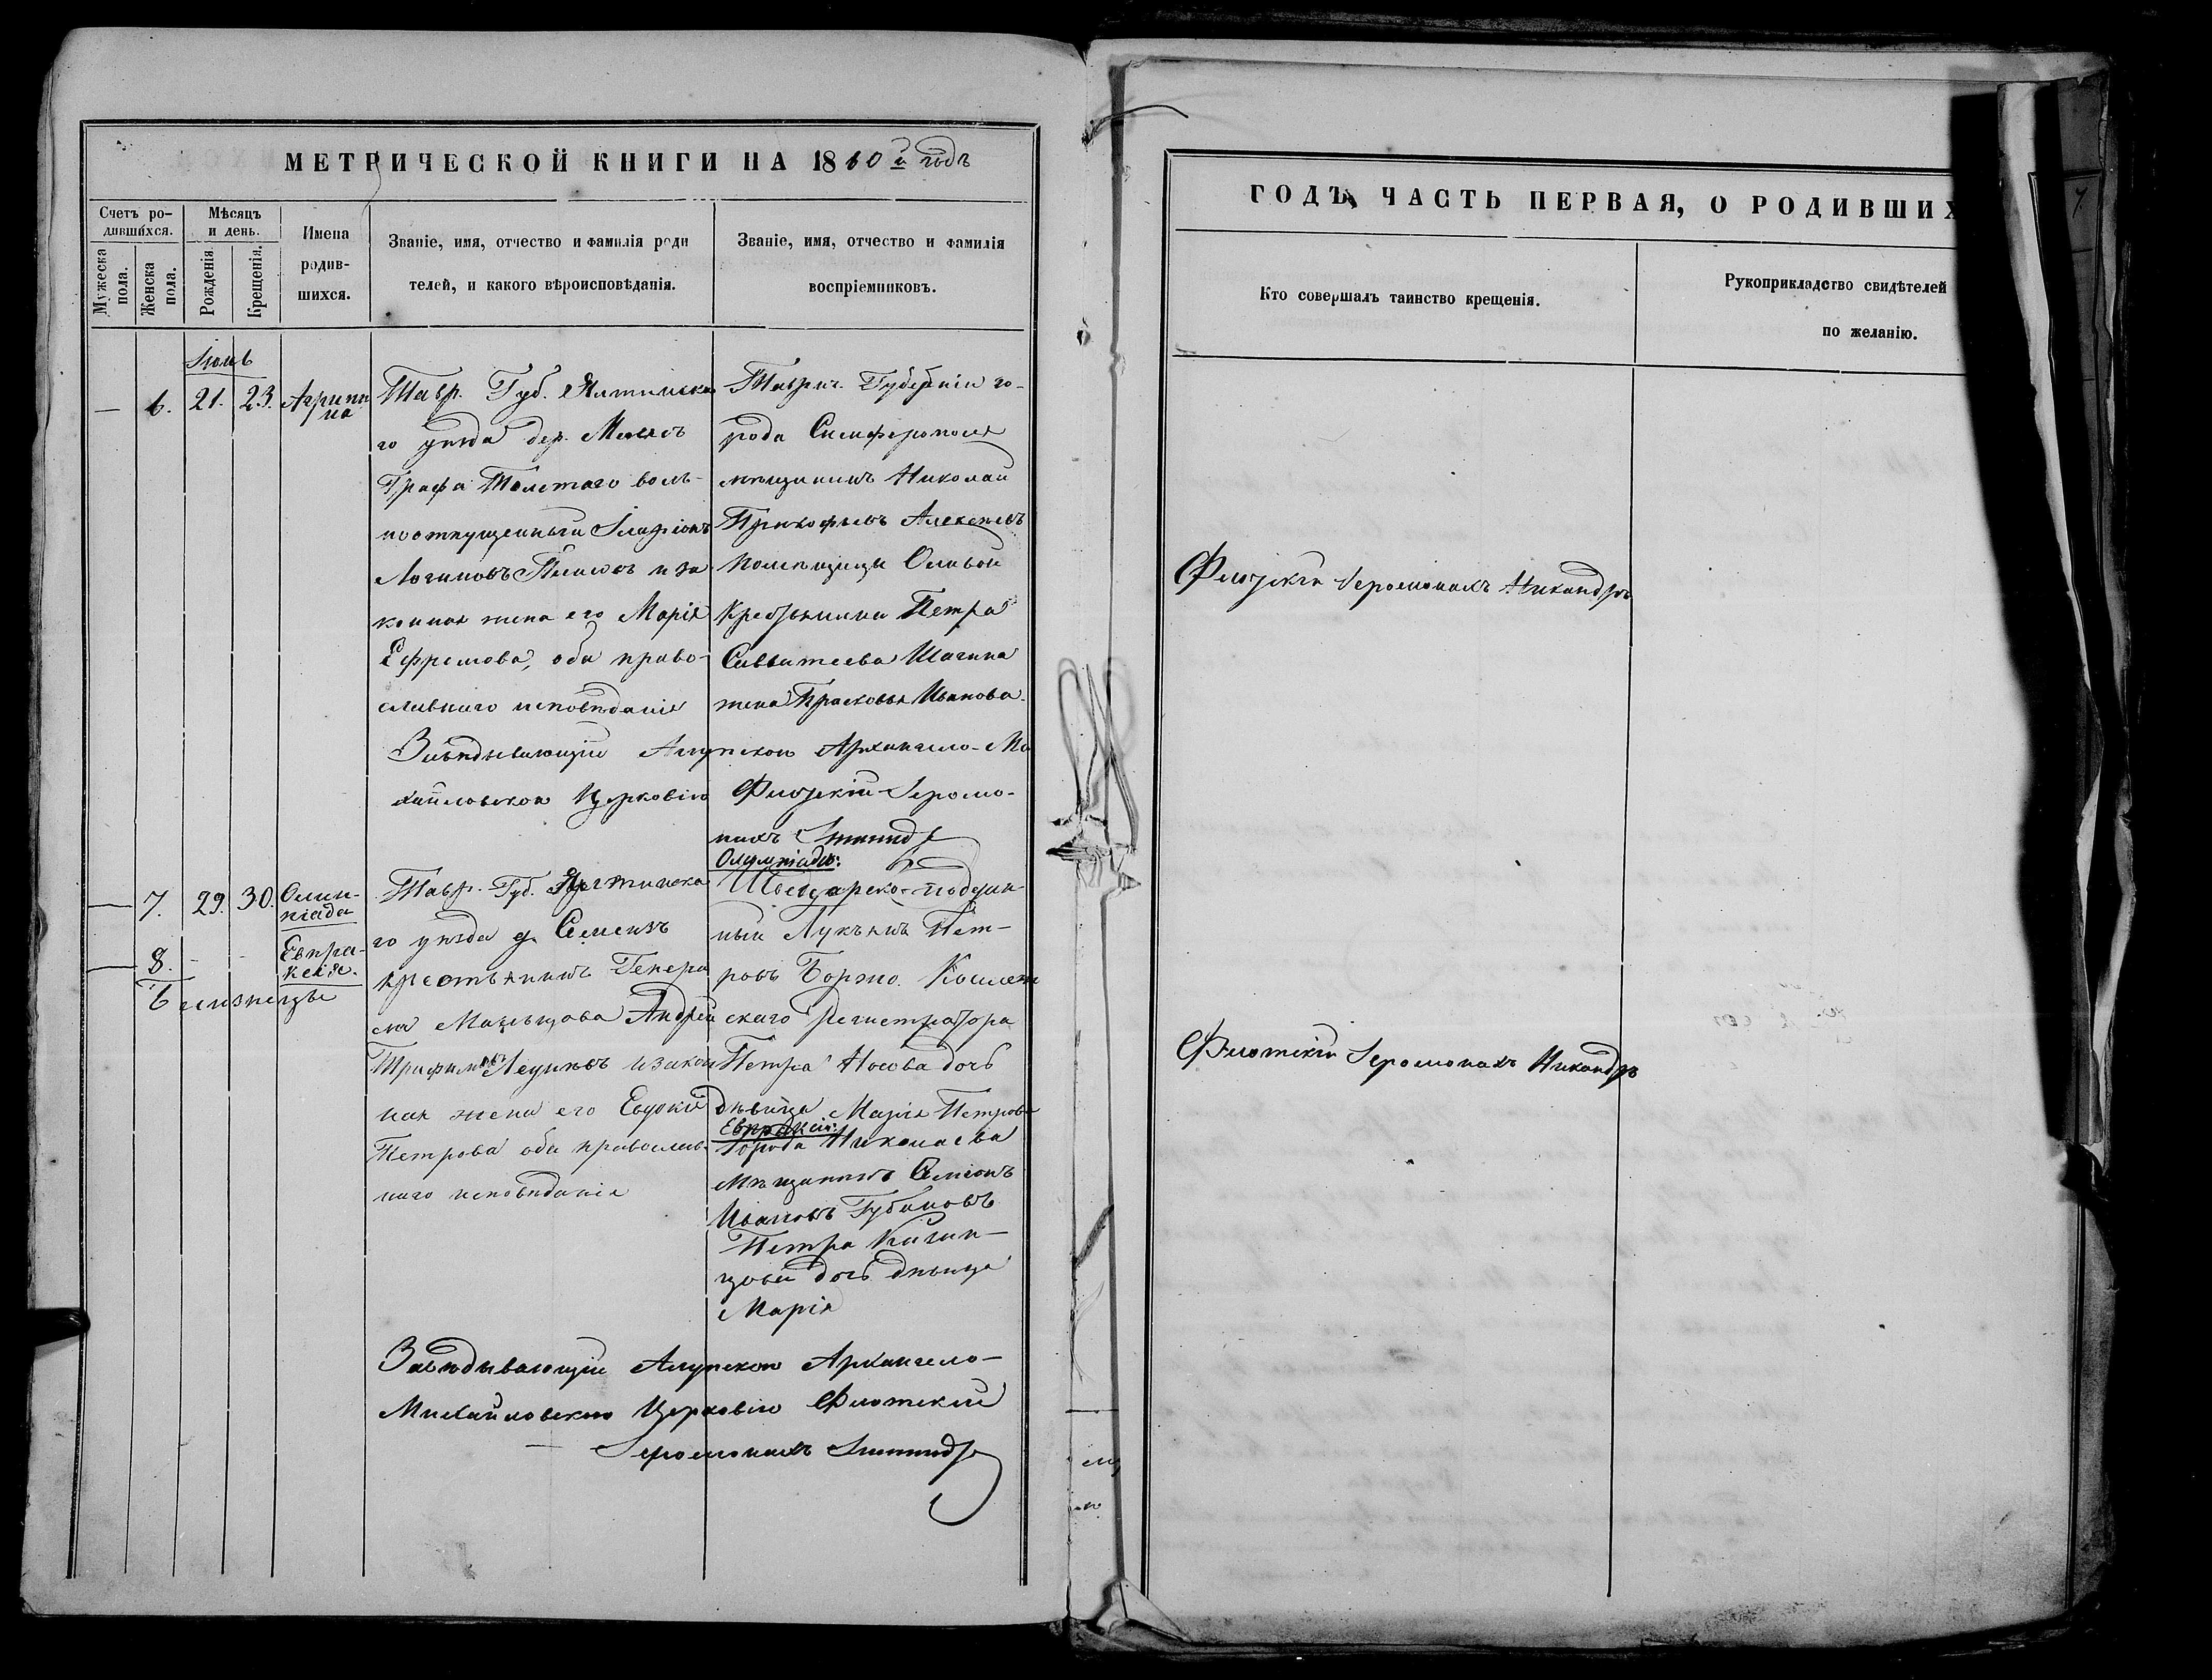 МЕТРИЧЕСКОЙ КНИГИ НА 1860й годъ
Счетъ ро-
дившихся.
Мѣсяцъ
и день.
Мужеска
пола.
Женска
пола.
Рожденія
Крещенія.
Имена
родив-
шихся.
Званіе, имя, отчество и фамилія роди
телей, и какого вѣроисповѣданія.
Званіе, имя, отчество и фамилія
воспріемниковъ.
— 6. 21. 23. Агрипи
на
Тавр. Губ. Ялтинска
го уѣзда дер. 
Графа Толстаго воль-
ноотпущенный Иларіонъ
Логиновъ и за
конная жена его Марія
Ефремова, оба право-
славнаго исповѣданія
Таврич. Губерніи го-
рода Симферополя
мѣщанинъ Николай
Прокофьевъ Алексѣевъ
помѣщицы
Петра
Савватеева Шагина
жена Прасковья Иванова.
Завѣдывающій Алупскою Архангело-Ми
хайловскою Церковію Флотскій Іеромо-
нахъ
— 7. 29. 30. Олим-
піада
— 8. - - Евпра-
ксія.
близнецы
Тавр. Губ. Ялтинска
го уѣзда д. Симеизъ
крестьянинъ Генера
ла Мальцова Андрей
Трифимовъ и закон
ная жена его Евдокія
Петрова оба православ-
наго исповѣданія
Олимпіады:
Швейцарско-поддан-
ный Лукъянъ Пет-
ровъ Боржо. Коллеж
скаго Регистратора
Петра Носова дочь
дѣвица Марія Петрова
Евпраксіи:
Города Николаева
мѣщанинъ Симеонъ
Ивановъ Губановъ
Петра
дочь дѣвица
Марія
Завѣдывающій Алупскою Архангело-
Михайловскою Церковію Флотскій
Іеромонахъ
ГОДЪ, ЧАСТЬ ПЕРВАЯ, О РОДИВШИХ
Кто совершалъ таинство крещенія.
Рукоприкладство свидѣтелей
по желанію.
Флотскій Іеромонахъ Никандръ
Флотскій Іеромонахъ Никандръ